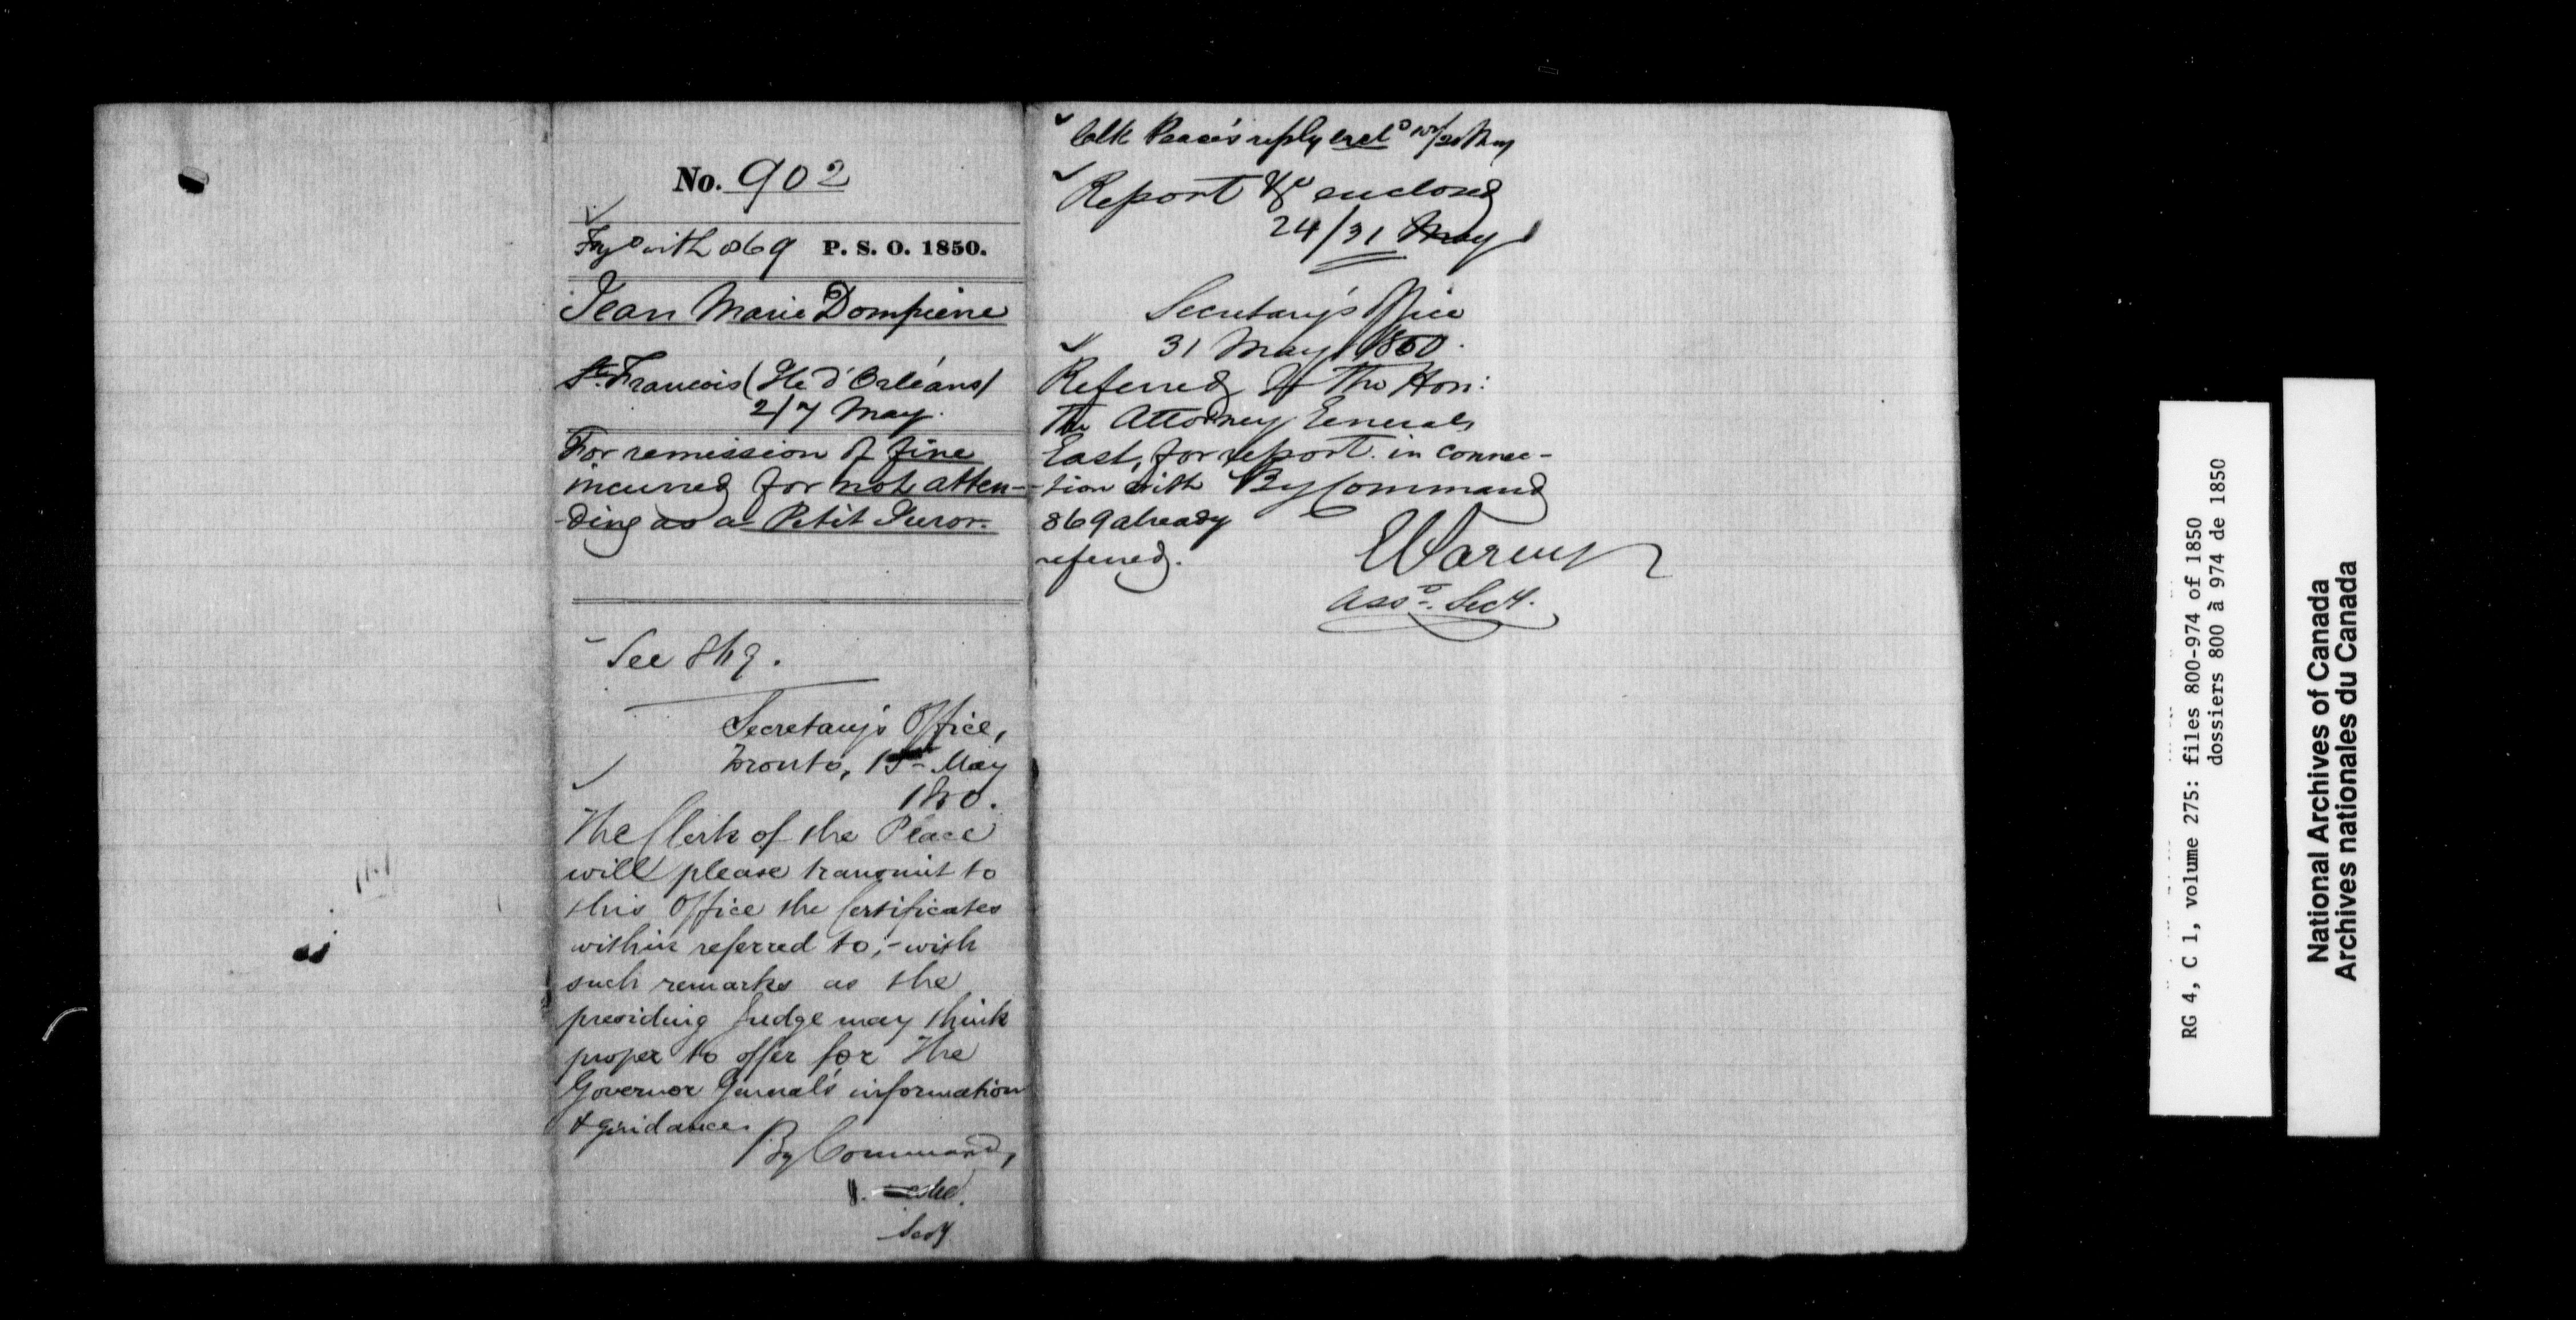 No. 902
Fyd with 869 P. S. O. 1850.
Jean Marie Dompierre
St. Francois (Ile d'Orléans)
2/7 May.
For remission of fine
incurred for not atten-
-ding as a Petit Juror.
See 869.
Secretary's Office,
Toronto, 15th May
1850.
The Clerk of the Peace
will please transmit to
this Office the Certificates
within referred to; - with
such remarks as the
presiding Judge may think
proper to offer for The
Governor General's information
& guidance.
By Command,
Secy
Clk Peace's reply encld 20 May
Report &c enclosed
24/31 May
Secretary's Office
31 May 1850.
Referred to The Hon:
The Attorney General
East, for report in connec-
-tion with
869 already
referred.
By Command
Asst. Secy.
RG 4, C 1, volume 275: files 800-974 of 1850
dossiers 800 à 974 de 1850
National Archives of Canada
Archives nationales du Canada